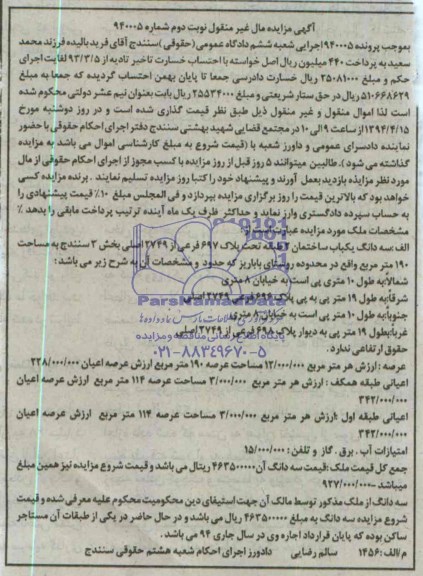 آگهی مزایده مال غیر منقول نوبت دوم شماره ۹۴۰۰۰۵
بموجب پرونده ۹۴۰۰۰۵ اجرایی شعبه ششم دادگاه عمومی (حقوقی) سنندج آقای فرید بالیده فرزند محمد
سعید به پرداخت ۴۴۰ میلیون ریال اصل خواسته با احتساب خسارت تاخیر تادیه از ۹۳/۳/۵ لغایت اجرای
حکم و مبلغ ۲۵۰۸۱۰۰۰ ریال خسارت دادرسی جمعا تا پایان بهمن احتساب گردیده که جمعا به مبلغ
۵۱۰۶۶۸۶۲۹ ریال در حق ستار شریعتی و مبلغ ۲۵۵۳۴۰۰۰ ریال بابت بعنوان نیم عشر دولتی محکوم شده
است لذا اموال منقول و غیر منقول ذیل طبق نظر قیمت گذاری شده است و در روز دوشنبه مورخ
۱۳۹۴/۴/۱۵ از ساعت ۹ الی ۱۰ در مجتمع قضایی شهید بهشتی سنندج دفتر اجرای احکام حقوقی با حضور
نماینده دادسرای عمومی و داورز شعبه با (قیمت شروع به مبلغ کارشناسی اموال می باشد به مزایده
گذاشته می شود). طالبین میتوانند ۵ روز قبل از روز مزایده با کسب مجوز از اجرای احکام حقوقی از مال
مورد نظر مزایده بازدید بعمل آورند و پیشنهاد خود را کتبا روز مزایده تسلیم نمایند . برنده مزایده کسی
خواهد بود که بالاترین قیمت را روز برگزاری مزایده بپردازد و فی المجلس مبلغ ۱۰٪ قیمت پیشنهادی را
به حساب سپرده دادگستری واریز نماید و حداکثر ظرف یک ماه آینده ترتیب پرداخت مابقی را بدهد
مشخصات ملک مورد مزایده عبارت است از:
الف: سه دانگ یکباب ساختمان ۲ طبقه تحت پلاک ۶۹۷ فرعی از ۲۷۴۹ اصلی بخش ۳ سنندج به مساحت
۱۹۰ متر مربع واقع در محدوده روستای باباریز که حدود و مشخصات آن به شرح زیر می باشد:
شمالاً: به طول ۱۰ متری پی است به خیابان ۸ متری
شرقاً: به طول ۱۹ متر پی به پی پلاک ۶۹۶ فرعی ۲۷۴۹ اصلی
جنوباً: به طول ۱۰ متری پی است به خیابان ۸ متری
غرباً: بطول ۱۹ متر پی به دیوار پلاک ۶۹۸ فرعی از ۲۷۴۹ اصلی
حقوق ارتفاعی ندارد.
عرصه: ارزش هر متر مربع ۱۲/۰۰۰/۰۰۰ مساحت عرصه ۱۹۰ متر مربع ارزش عرصه اعیان ۲۲۸/۰۰۰/۰۰۰
اعیانی طبقه همکف: ارزش هر متر مربع ۳/۰۰۰/۰۰۰ مساحت عرصه ۱۱۴ متر مربع ارزش عرصه اعیان
۳۴۲/۰۰۰/۰۰۰
اعیانی طبقه اول: ارزش هر متر مربع ۳/۰۰۰/۰۰۰ مساحت عرصه ۱۱۴ متر مربع ارزش عرصه اعیان
۳۴۲/۰۰۰/۰۰۰
امتیازات آب. برق. گاز و تلفن: ۱۵/۰۰۰/۰۰۰
جمع کل قیمت ملک: قیمت سه دانگ آن ۴۶۳۵۰۰۰۰۰ ریتال می باشد و قیمت شروع مزایده نیز همین مبلغ
میباشد = ۹۲۷/۰۰۰/۰۰۰
سه دانگ از ملک مذکور توسط مالک آن جهت استیفای دین محکومیت محکوم علیه معرفی شده و قیمت
شروع مزایده سه دانگ به مبلغ ۴۶۳۵۰۰۰۰۰ ریال می باشد و در حال حاضر در یکی از طبقات آن مستاجر
ساکن بوده که پایان قرارداد اجاره وی در سال جاری ۹۴ می باشد.
م/الف: ۱۴۵۶ سالم رفتایی دادورز اجرای احکام شعبه هشتم حقوقی سنندج
ParsNamadData
پایگاه اطلاع رسانی مناقصه و مزایده
۰۲۱-۸۸۳۴۹۶۷۰-۵